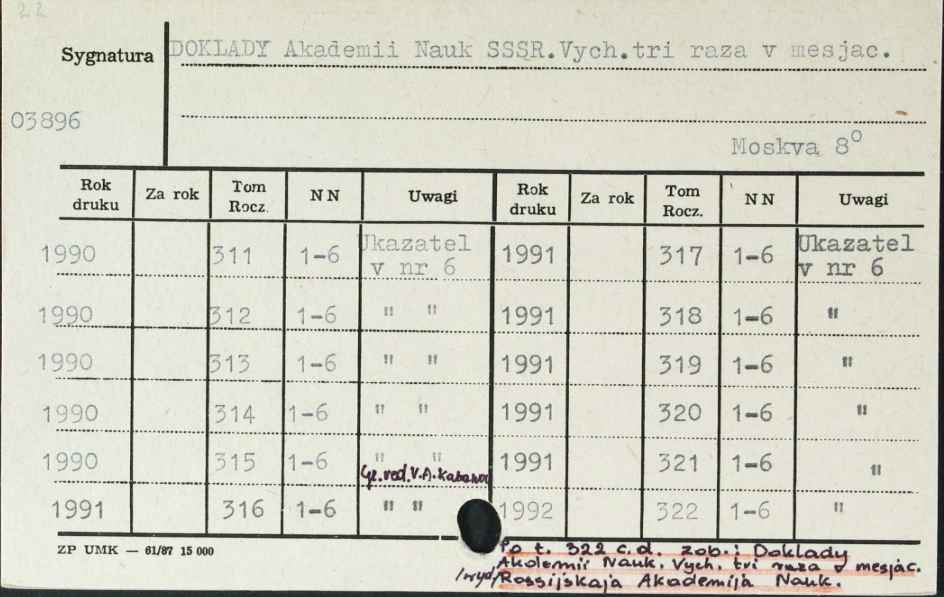 22
Sygnatura DOKLADY Akademii Nauk SSSR.Vych.tri raza v mesjac.
03896
Moskva 8⁰
Rok druku Za rok Tom Rocz. N N Uwagi Rok druku Za rok Tom Rocz. N N Uwagi
1990 311 1-6 Ukazatel v nr 6 1991 317 1-6 Ukazatel v nr 6
1990 312 1-6 " " 1991 318 1-6 "
1990 313 1-6 " " 1991 319 1-6 "
1990 314 1-6 " " 1991 320 1-6 "
1990 315 1-6 " " 1991 321 1-6 "
Gl.red.V.A.
1991 316 1-6 " " 1992 322 1-6 "
ZP UMK — 61/87 15 000
Po t. 322 c.d. zob.: Doklady
Akademii Nauk. Vych. tri raza v mesjac.
/wyd/ Rossijskaja Akademija Nauk.